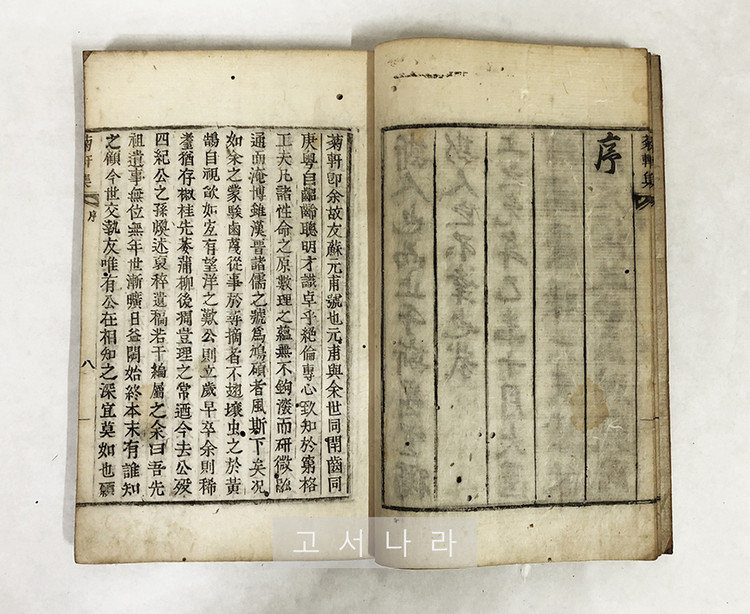 菊軒集
序
菊軒卽余故友蘇元甫號也元甫與余世同閈齒同
庚粤自齠齡聰明才識卓乎絶倫專心致知於窮格
工夫凡諸性命之原數理之蘊無不鉤深而研微融
通而淹博雖漢晉諸儒之號爲鴻碩者風斯下矣况
如余之蒙騃鹵莾從事於尋摘者不翅壤虫之於黄
鵠自視欿如宜有望洋之歎公則立歲早卒余則稀
耋猶存椒桂先萎蒲柳後凋豈理之常迺今去公歿
四紀公之孫爕述裒稡遺稿若干編屬之余曰吾先
祖遺事無位無年世漸曠日益闇始終本末有誰知
之顧今世交執友唯有公在相知之深宜莫如也願
菊軒集 序 八
고서나라